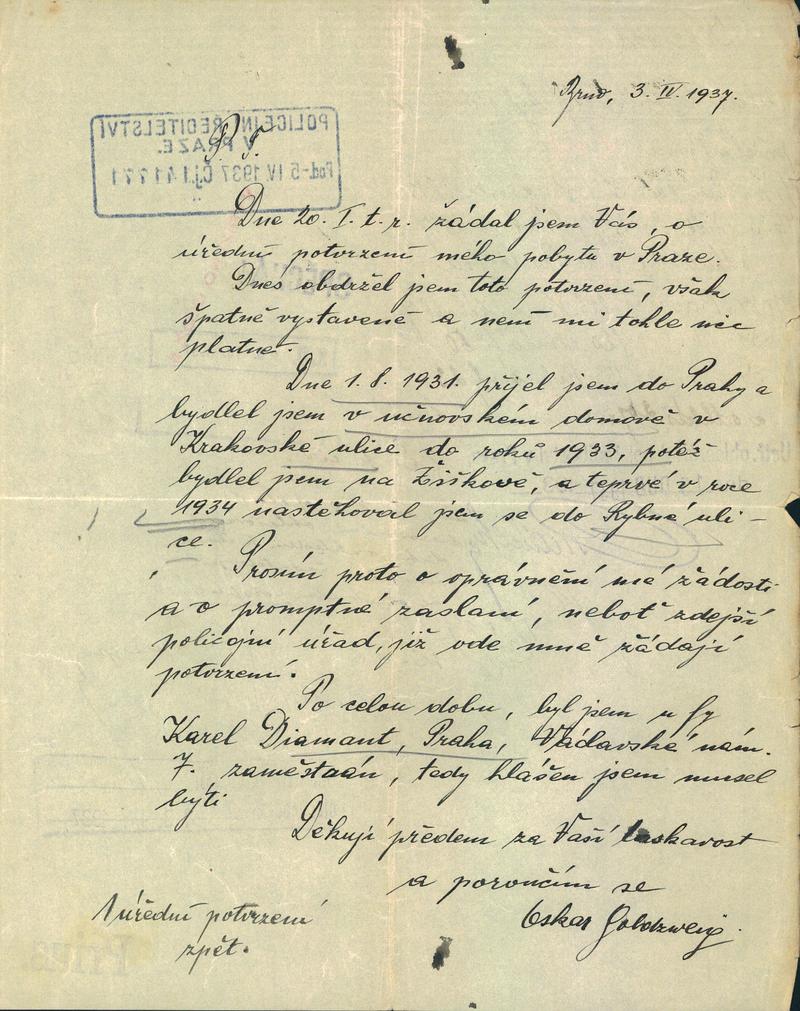 Brno, 3. IV. 1937.
POLICEJNÍ ŘEDITELSTVÍ
V PRAZE.
Pod. -5. IV. 1937 Čj. 141771
P. T.
Dne 20. I. t. r. žádal jsem Vás, o
úřední potvrzení mého pobytu v Praze.
Dnes obdržel jsem toto potvrzení, však
špatně vystavené a není mi tohle nic
platné.
Dne 1. 8. 1931. přijel jsem do Prahy a
bydlel jsem v učňovském domově v
Krakovské ulice do roků 1933, potéž
bydlel jsem na Žižkově, a teprvé v roce
1934 nastěhoval jsem se do Rybné uli-
ce.
Prosím proto o oprávnění mé žádosti
a o promptné zaslaní, neboť zdejší
policejní úřad, již ode mně žádají
potvrzení.
Po celou dobu, byl jsem u fy
Karel Diamant, Praha, Václavské nám.
7. zaměstnán, tedy hlášen jsem musel
býti
Děkuji předem za Vaší laskavost
a poroučím se
Oskar Goldzweig.
1 úřední potvrzení
zpět.